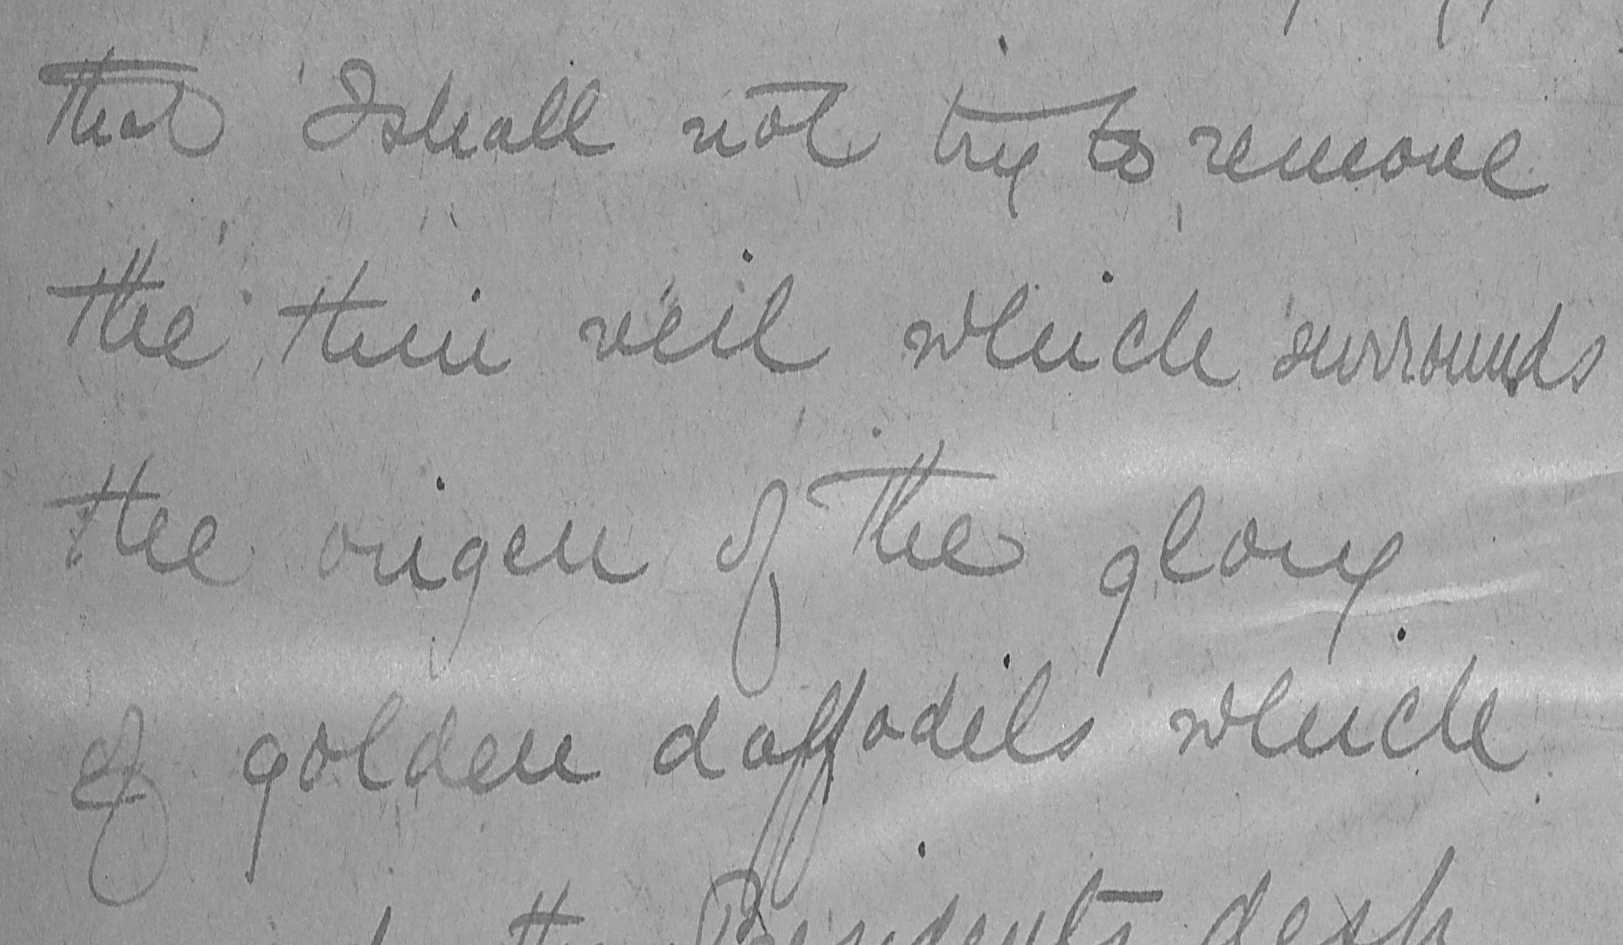 that I shall not try to remove
the thin veil which surrounds
the origen of the glory
of golden daffodils which
the Presidents desk